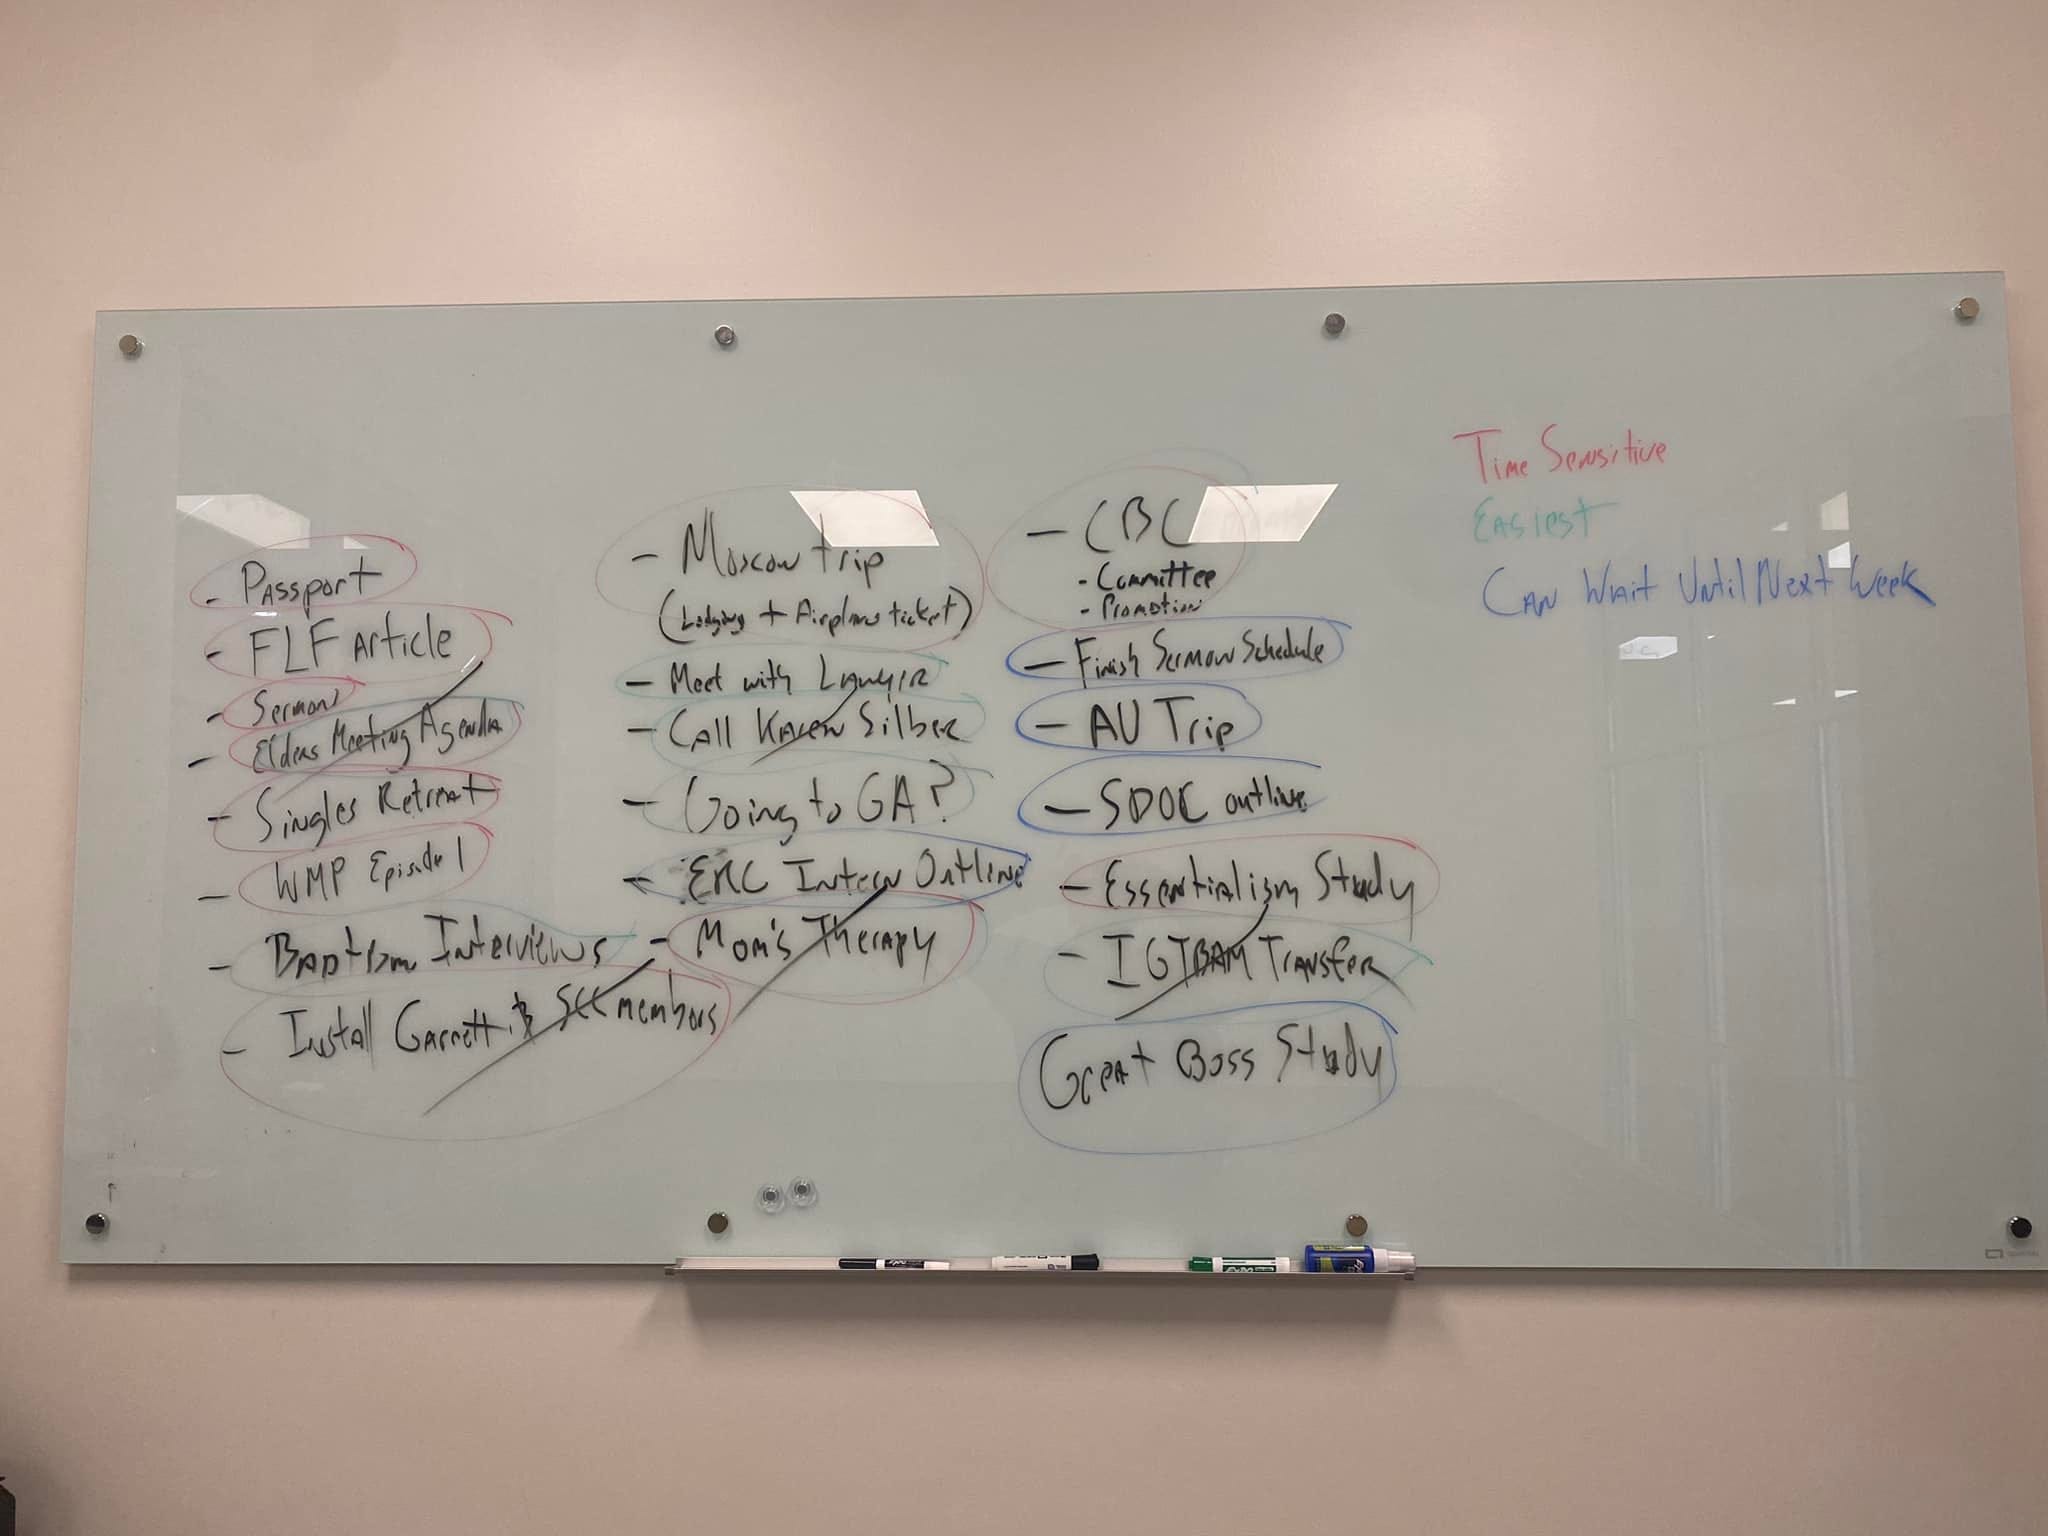 - Passport
- FLF Article
- Sermons
- Elders Meeting Agenda
- Singles Retreat
- WMP Episode 1
- Baptism Interviews
- Install Garrett & SCC members
- Moscow trip
(Lodging + Airplane ticket)
- Meet with Lawyer
- Call Karen Silber
- Going to GA?
- ERC Intern Outline
- Mom's Therapy
- CBC
- Committee
- Promotion
- Finish Sermon Schedule
- AU Trip
- SDOC outline
- Essentialism Study
- IGTBAM Transfer
Great Boss Study
Time Sensitive
Easiest
Can Wait Until Next Week